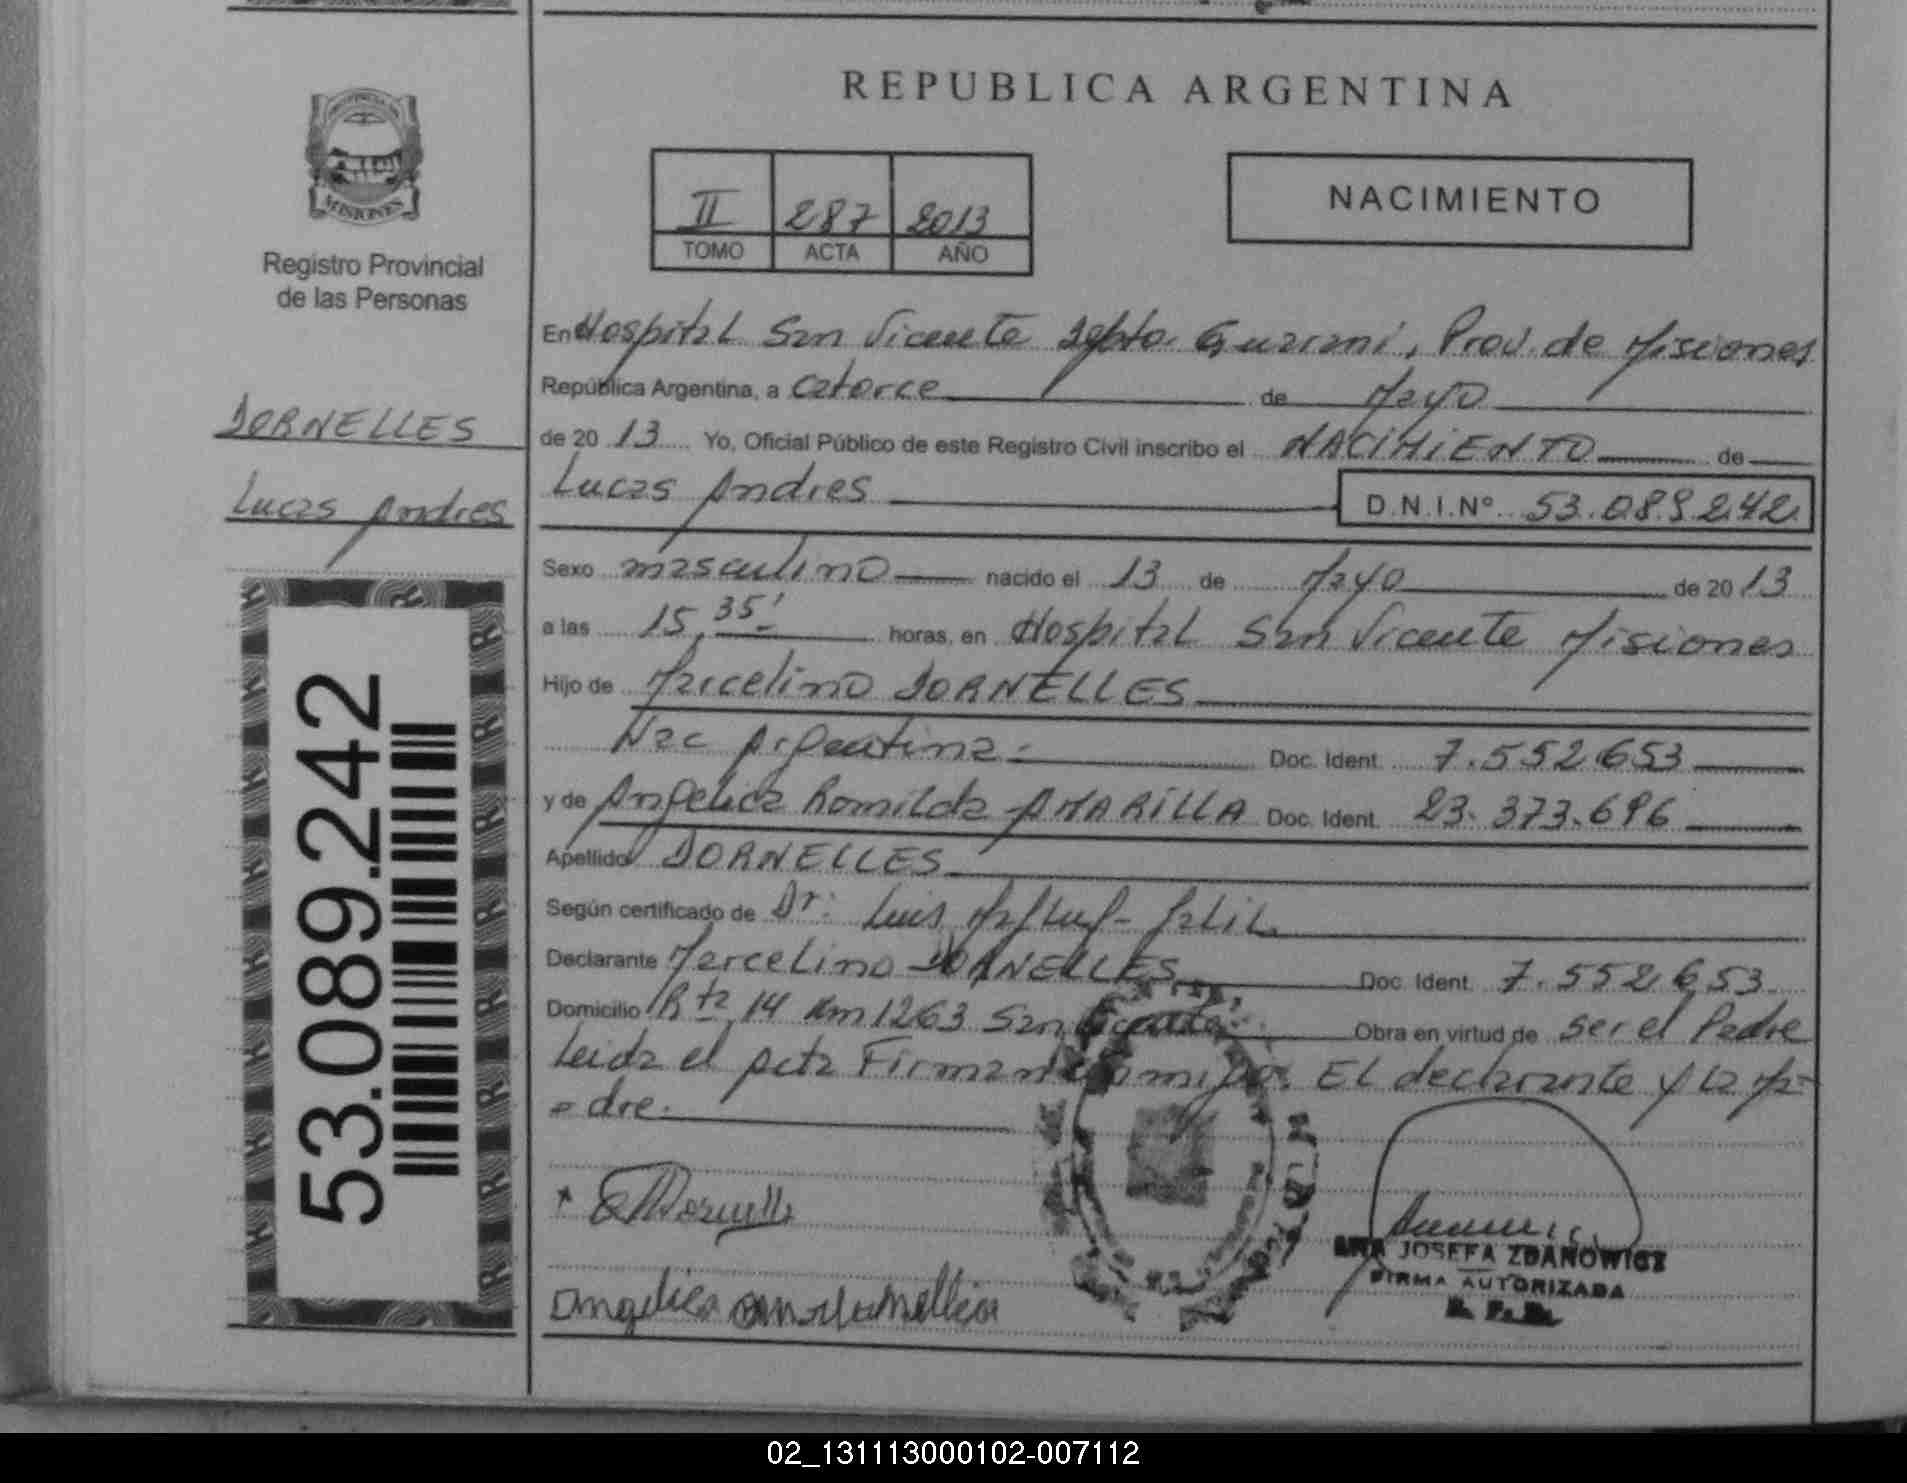 REPUBLICA ARGENTINA
PROVINCIA DE
MISIONES
Registro Provincial
de las Personas
II 287 2013
TOMO ACTA AÑO
NACIMIENTO
DORNELLES
Lucas Andres
53.089.242
En Hospital San Vicente Depto. Guarani, Prov. de Misiones
República Argentina, a catorce de Mayo
de 20 13 Yo, Oficial Público de este Registro Civil inscribo el NACIMIENTO de
Lucas Andres D.N.I.Nº 53.089.242.
Sexo masculino nacido el 13 de Mayo de 20 13
a las 15,35' horas, en Hospital San Vicente Misiones
Hijo de Marcelino DORNELLES
Nac Argentina.- Doc. Ident. 7.552.653
y de Angelica Romilda AMARILLA Doc. Ident. 23.373.696
Apellido DORNELLES
Según certificado de Dr: Luis
Declarante Marcelino DORNELLES Doc. Ident. 7.552.653
Domicilio Rta 14 Km 1263 San Vicente Obra en virtud de ser el Padre
Leida el acta Firman conmigo. El declarante y la Ma-
dre.
Dornelles
Angelica
JOSEFA ZDANOWICZ
FIRMA AUTORIZADA
02_131113000102-007112